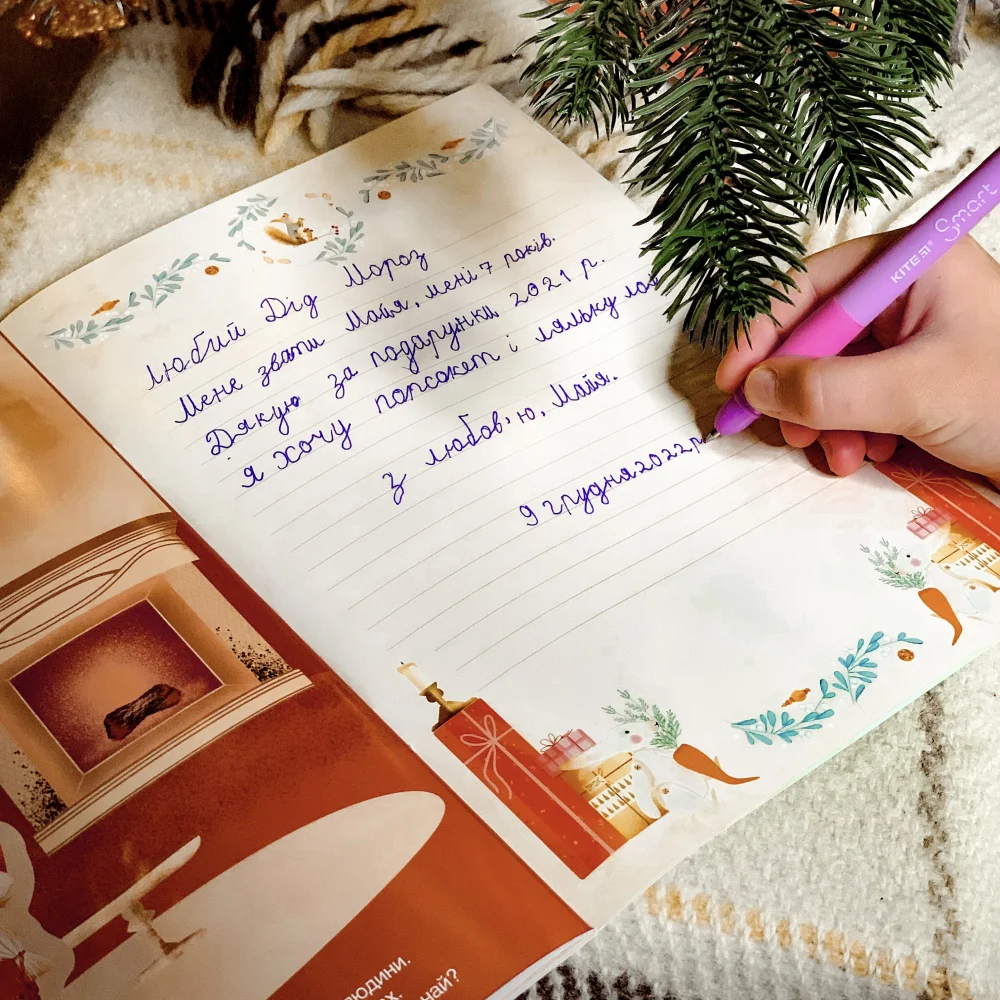 Любий Дід Мороз
Мене звати Майя, мені 7 років.
Дякую за подарунки 2021 р.
Я хочу попсокет і ляльку
З любов'ю, Майя.
9 грудня 2022р
KITE
Smart